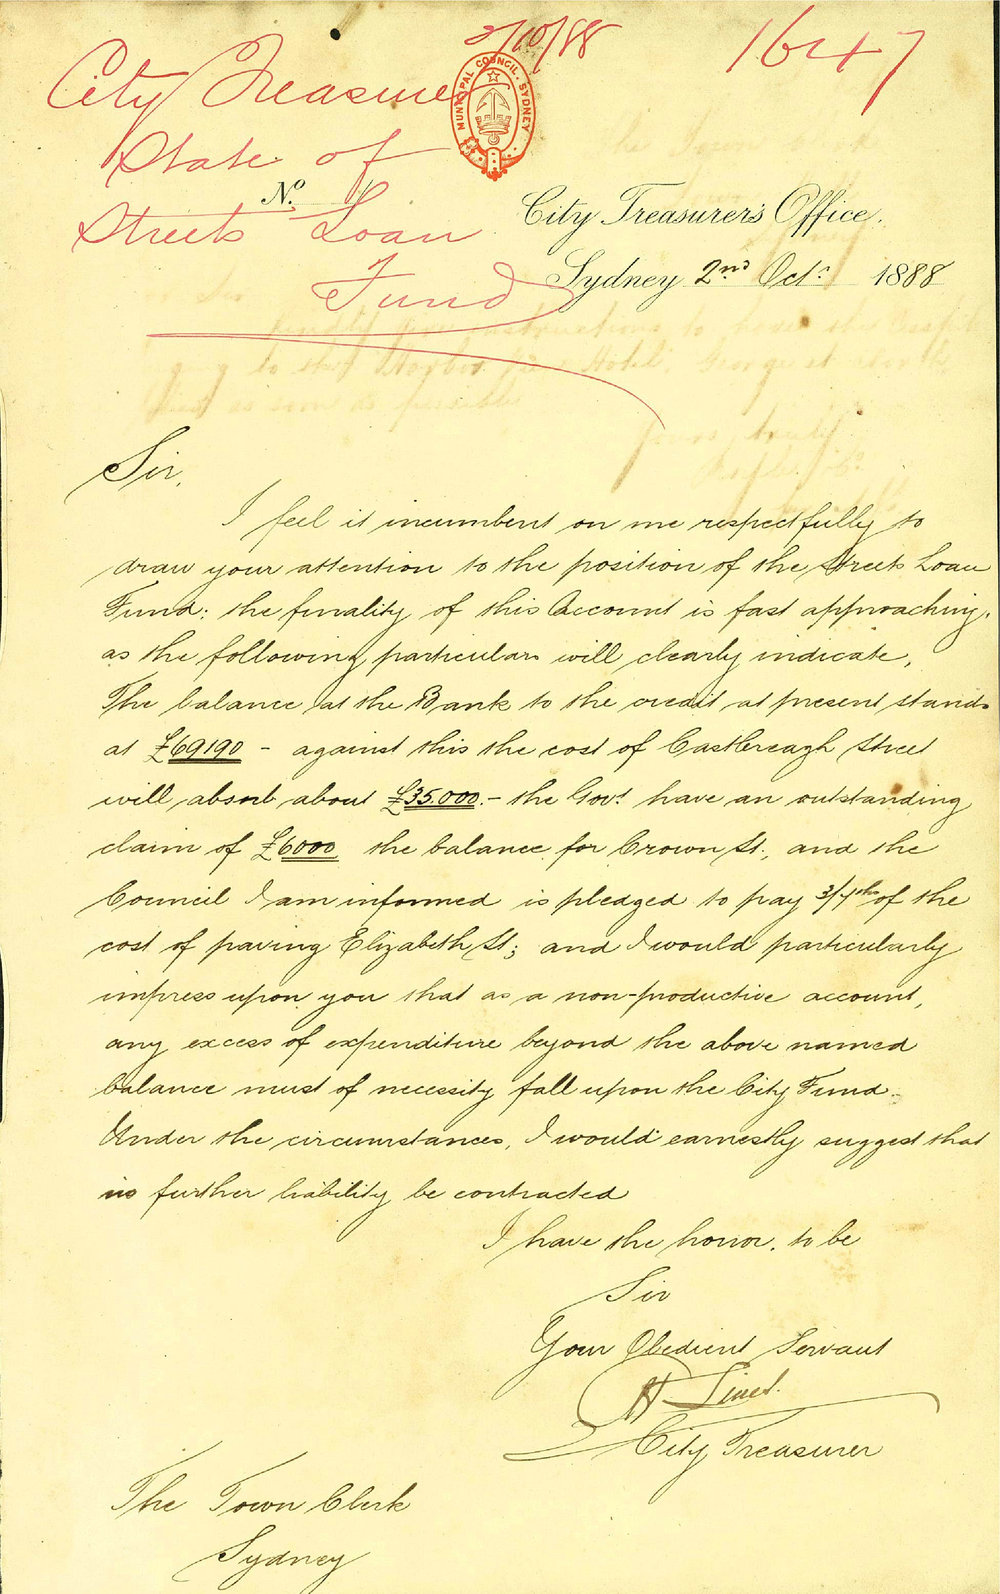 2/10/88
1647
City Treasurer
MUNICIPAL COUNCIL. SYDNEY
State of
No.
Streets Loan
City Treasurer's Office.
Fund
Sydney 2nd Octr 1888
Sir,
I feel it incumbent on me respectfully to
draw your attention to the position of the Streets Loan
Fund: the finality of this Account is fast approaching,
as the following particulars will clearly indicate,
The balance at the Bank to the credit at present stands
at £69190 - against this the cost of Castlereagh Street
will absorb about £35.000.- the Govt have an outstanding
claim of £6000 the balance for Crown St., and the
Council I am informed is pledged to pay of the
cost of paving Elizabeth St; and I would particularly
impress upon you that as a non-productive account,
any excess of expenditure beyond the above named
balance must of necessity fall upon the City Fund.
Under the circumstances, I would earnestly suggest that
no further liability be contracted
I have the honor. to be
Sir
Your Obedient Servant
City Treasurer
The Town Clerk
Sydney